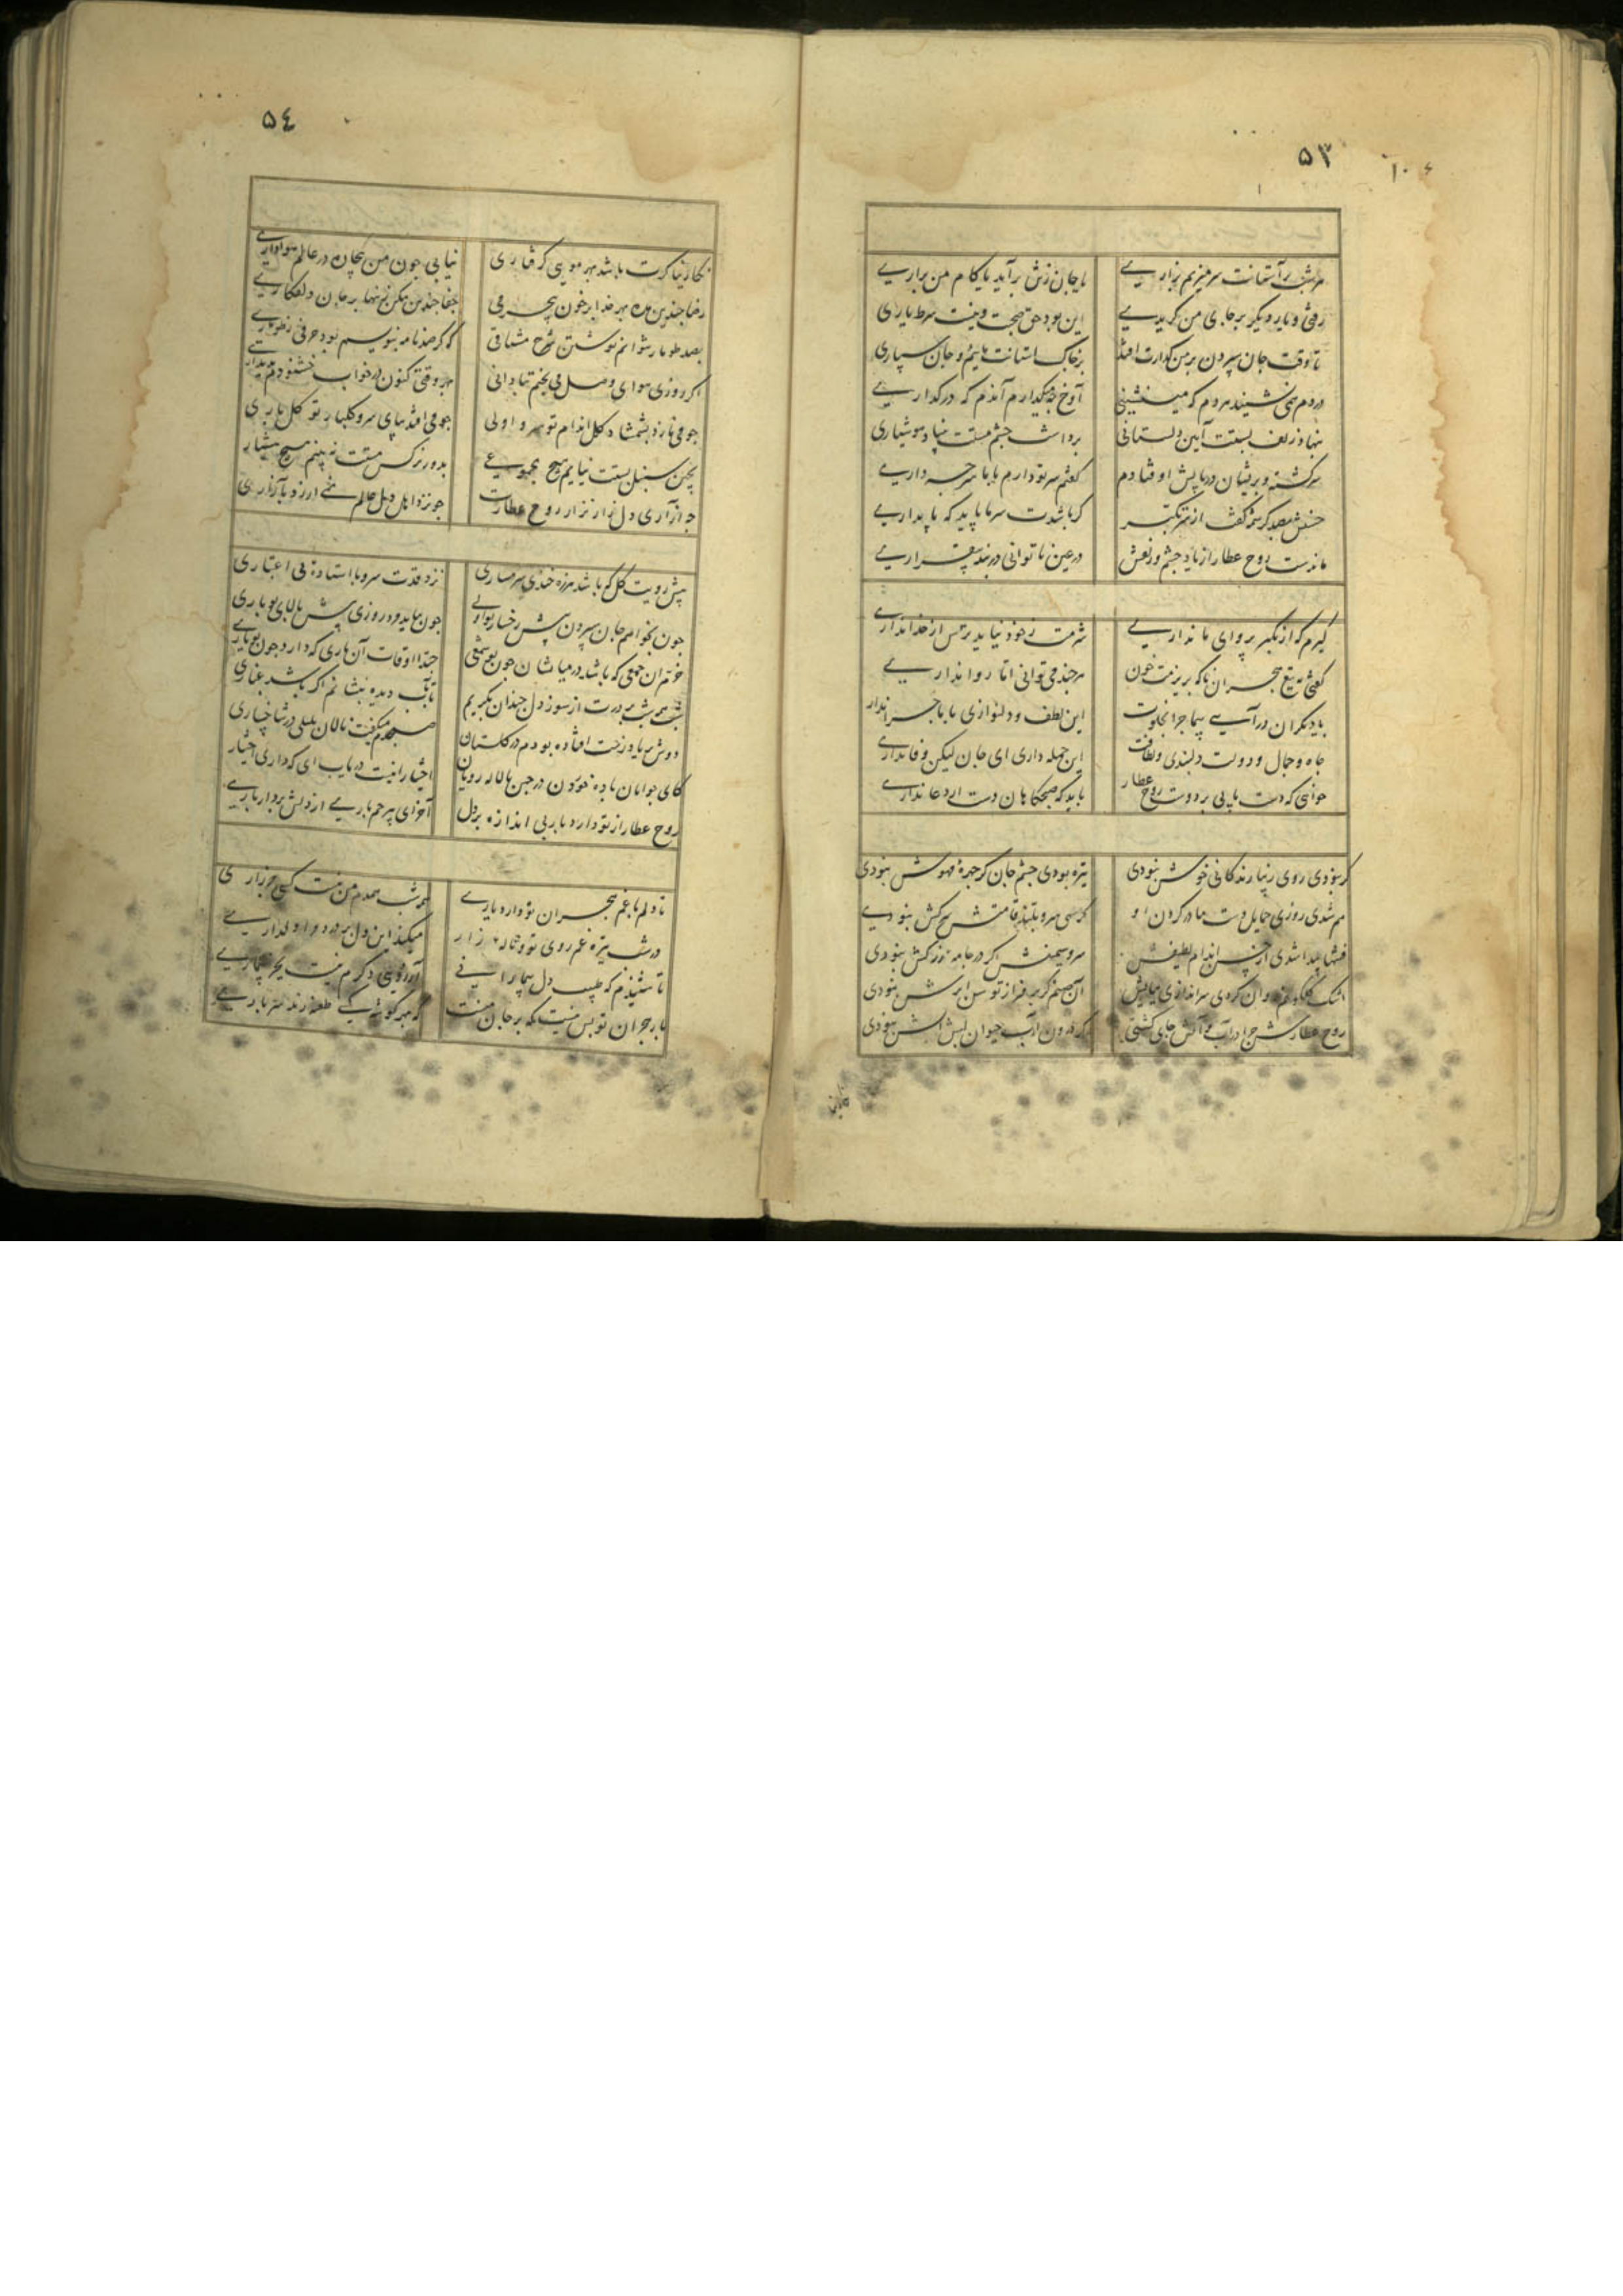 ۵۳
هر شب بر آستانت سر میزنم بزاری
یا جان زتن برآید یا کام من براری
رفتی و یار دیگر بر جای من گزیدی
این بود حق صحبت وینست شرط یاری
تا وقت جان سپردن بر من گذارت افتد
بر خاک استانت مائیم و جان سپاری
در دم نمی نشیند هر دم که می نشینی
آوخ چه میگذارم آندم که در گذاری
بنهاد زلف بستت آیین دلستانی
برداشت چشم مستت بنیاد هوشیاری
سرگشته و پریشان در پایش اوفتادم
گفتم سر تو دارم با ما سر چه داری
گر باشدت سر ما باید که پا بداری
ماندست روح عطار از یاد چشم و زلفش
در عین ناتوانی در بند بیقراری
گیرم که از تکبر پروای ما نداری
شرمت زخود نیاید ترس از خدا نداری
گفتی به تیغ هجران ناکه بریزمت خون
هر چند می توانی اما روا نداری
با دیگران در آیی بی ماجرا بخلوت
این لطف و دلنوازی با ما چرا نداری
جاه و جمال و دولت دلبندی و لطافت
این جمله داری ای جان لیکن وفا نداری
خواهی که دست یابی بر دوست روح عطار
باید که صبحگاهان دست از دعا نداری
گر نبودی روی زیبا زندگانی خوش نبودی
تیره بودی چشم جان گر چهرهٔ مهوش نبودی
هم شدی روزی حمایل دست ما در گردن او
گر سهی سرو بلند قامتش سرکش نبودی
سرو سیمینش اگر در جامه زرکش نبودی
آن صنم گر بر فراز توسن ابرش نبودی
روح عطارش چرا در آب و آتش جای گشتی
گر درون آب حیوان لبش آتش نبودی
۵٤
نگارینا کرت باشد بهر مویی گرفتاری
نیابی چون من بیچاره در عالم هواداری
جفا چندین مکن تنها بر جان و دلفکاری
بصد طومار نتوانم نوشتن شرح مشتاقی
که گر صد نامه بنویسم بود حرفی ز طوماری
اگر روزی هوای وصل می پختم بنادانی
بهر وقتی کنون در خواب خشنودم بدیداری
چو می نازد بشمشاد گل اندام تو سرو اولی
چو می افتد بپای سرو گلبار تو گل باری
بدور نرگس مستت نه بینم هیچ هشیار
چه آزاری دل زار نزار روح عطارت
پیش رویت گل که باشد هرزه خندی شرمساری
نزد قدت سرو با استاده بی اعتباری
چون بخواهم جان سپردن پیش رخسار تو اولی
چون بباید مرد روزی پیش بالای تو باری
خرم آن جمعی که باشد در میانشان چون تو شمعی
حبذا اوقات آن یاری که دارد چون تو یاری
شب همه شب بر درت از سوز دل چندان بگریم
تا بآب دیده بنشانم اگر باشد غباری
دوش بر یاد رخت افتاده بودم در گلستان
صبحدم میگفت نالان بلبلی در شاخساری
کای جوانان باده خوردن در چمن با لاله رویان
اختیار اینست دریاب ای که داری اختیار
روح عطار از تو دارد بار بی اندازه بر دل
آخر ای بیرحم یاری از دلش بردار باری
تا دلم با غم هجران تو دارد یاری
همه شب همدم من نیست کسی جز زاری
در شب تیره غم روی تو
میکند این دل پر درد
تا شنیدم که طبیب دل بیمارانی
آرزویی دگرم نیست بجز بیماری
بار هجران تو بس نیست که بر جان منست
که بهر گوشه یکی طعنه زند سرباری